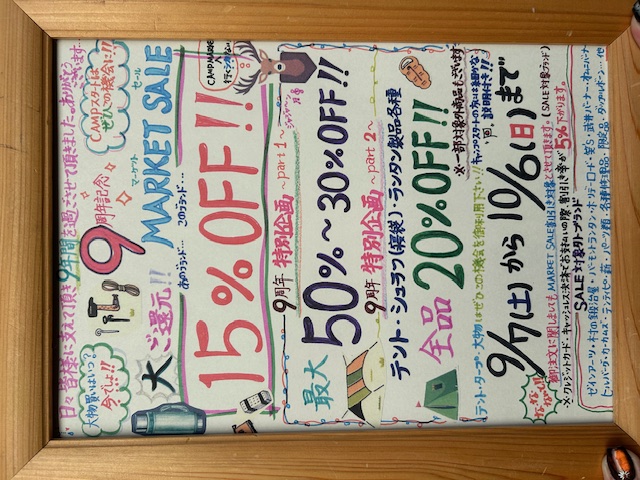 日々皆様に支えて頂き9年間を過ごさせて頂きました。ありがとうございます
大物買いはいつ?
今でしょ!!
9周年記念
CAMPスタートは
ぜひこの機会に!!
大ご還元!!
マーケット セール
MARKET SALE
あのブランド… このブランド…
15%OFF!!
CAMP MARKET
へ
行くシカない
9周年 特別企画 ~part1~
ジャジャーン
最大
50%~30%OFF!!
9周年 特別企画 ~part2~
テント・シュラフ(寝袋)・ランタン製品各種
全品 20%OFF!!
※一部対象外商品もございます
テント・タープ・大物はぜひこの機会を御利用下さい!!
キャンプスタートの方には細かな
説明付き!!
9/7(土)から10/6(日)まで
な、な、
なんと!!
御注文に関しましてもMARKET SALE割引き対象とさせて頂きます。(SALE対象ブランド)
※クレジットカード・キャッシュレス決済でお支払いの際、割引き率が5%下がります。
SALE対象外ブランド
ゼインアーツ・村の鍛冶屋・バーモントランタン・ホリデーロード・笑's・武井バーナー・オムニバーナー
ヒルバーグ・カーカムス・テンティピ・薪・パーツ類・各種修理品・限定品・ダップルボーン…他